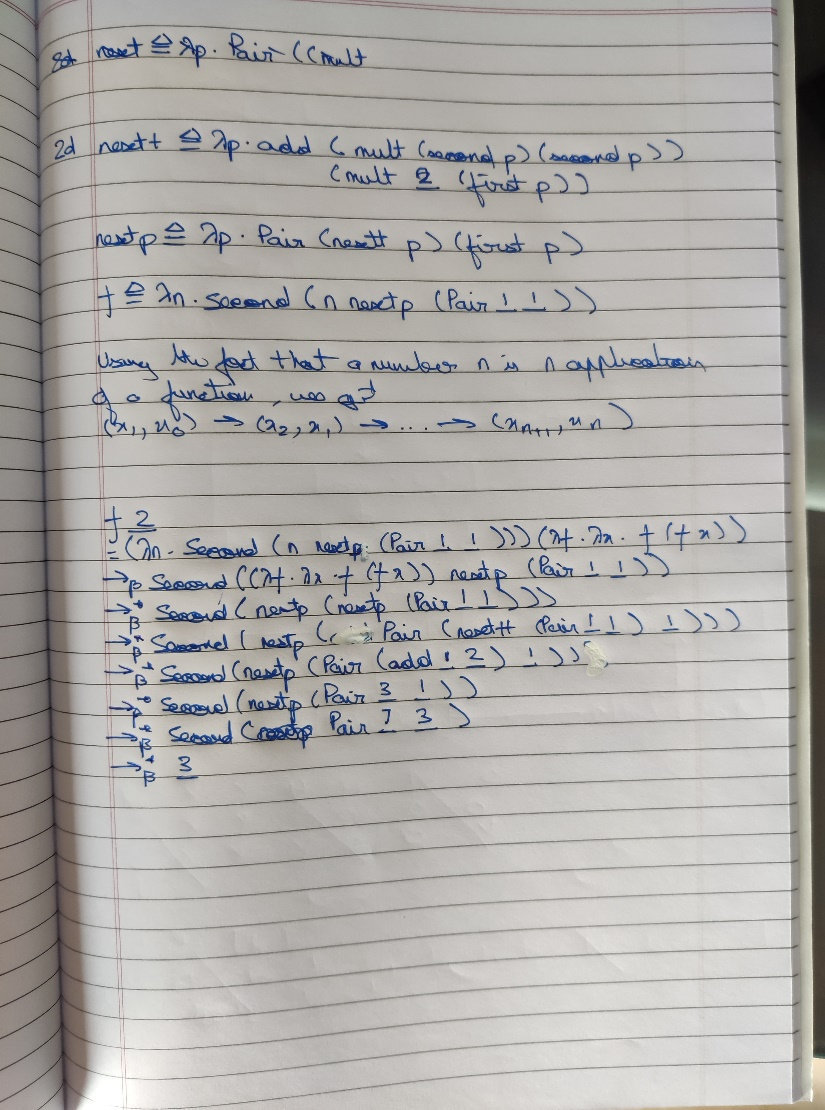 next ≙ λp. Pair ((mult
2d nextt ≙ λp. add (mult (second p) (second p))
(mult 2 (first p))
nextp ≙ λp. Pair (nextt p) (first p)
f ≙ λn. second (n nextp (Pair 1 1))
Using the fact that a number n is n application
of a function, we get
(x₁, x₀) → (x₂, x₁) → ... → (xₙ₊₁, xₙ)
f 2
= (λn. Second (n nextp (Pair 1 1))) (λf. λx. f (f x))
→β Second ((λf. λx f (f x)) nextp (Pair 1 1))
→*β Second (nextp (nextp (Pair 1 1)))
→*β Second (nextp (Pair (nextt (Pair 1 1) 1)))
→*β Second (nextp (Pair (add 1 2) 1))
→*β Second (nextp (Pair 3 1))
→*β Second (Pair 7 3)
→*β 3